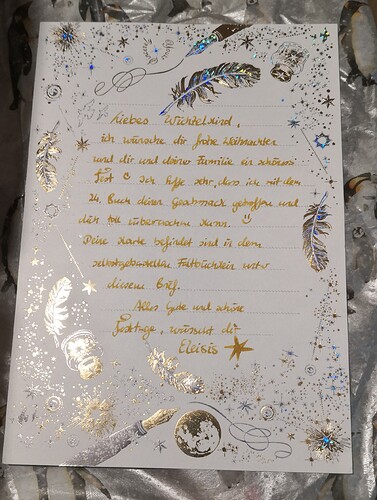 Liebes Wichtelkind,
ich wünsche dir frohe Weihnachten
und dir und deiner Familie ein schönes
Fest ☺ Ich hoffe sehr, dass ich mit dem
24. Buch deinen Geschmack getroffen und
dich toll überraschen kann. ☺
Deine Karte befindet sind in dem
selbstgebastelten Faltbüchlein unter
diesem Brief.
Alles Gute und schöne
Festtage, wünscht dir
Eleisis